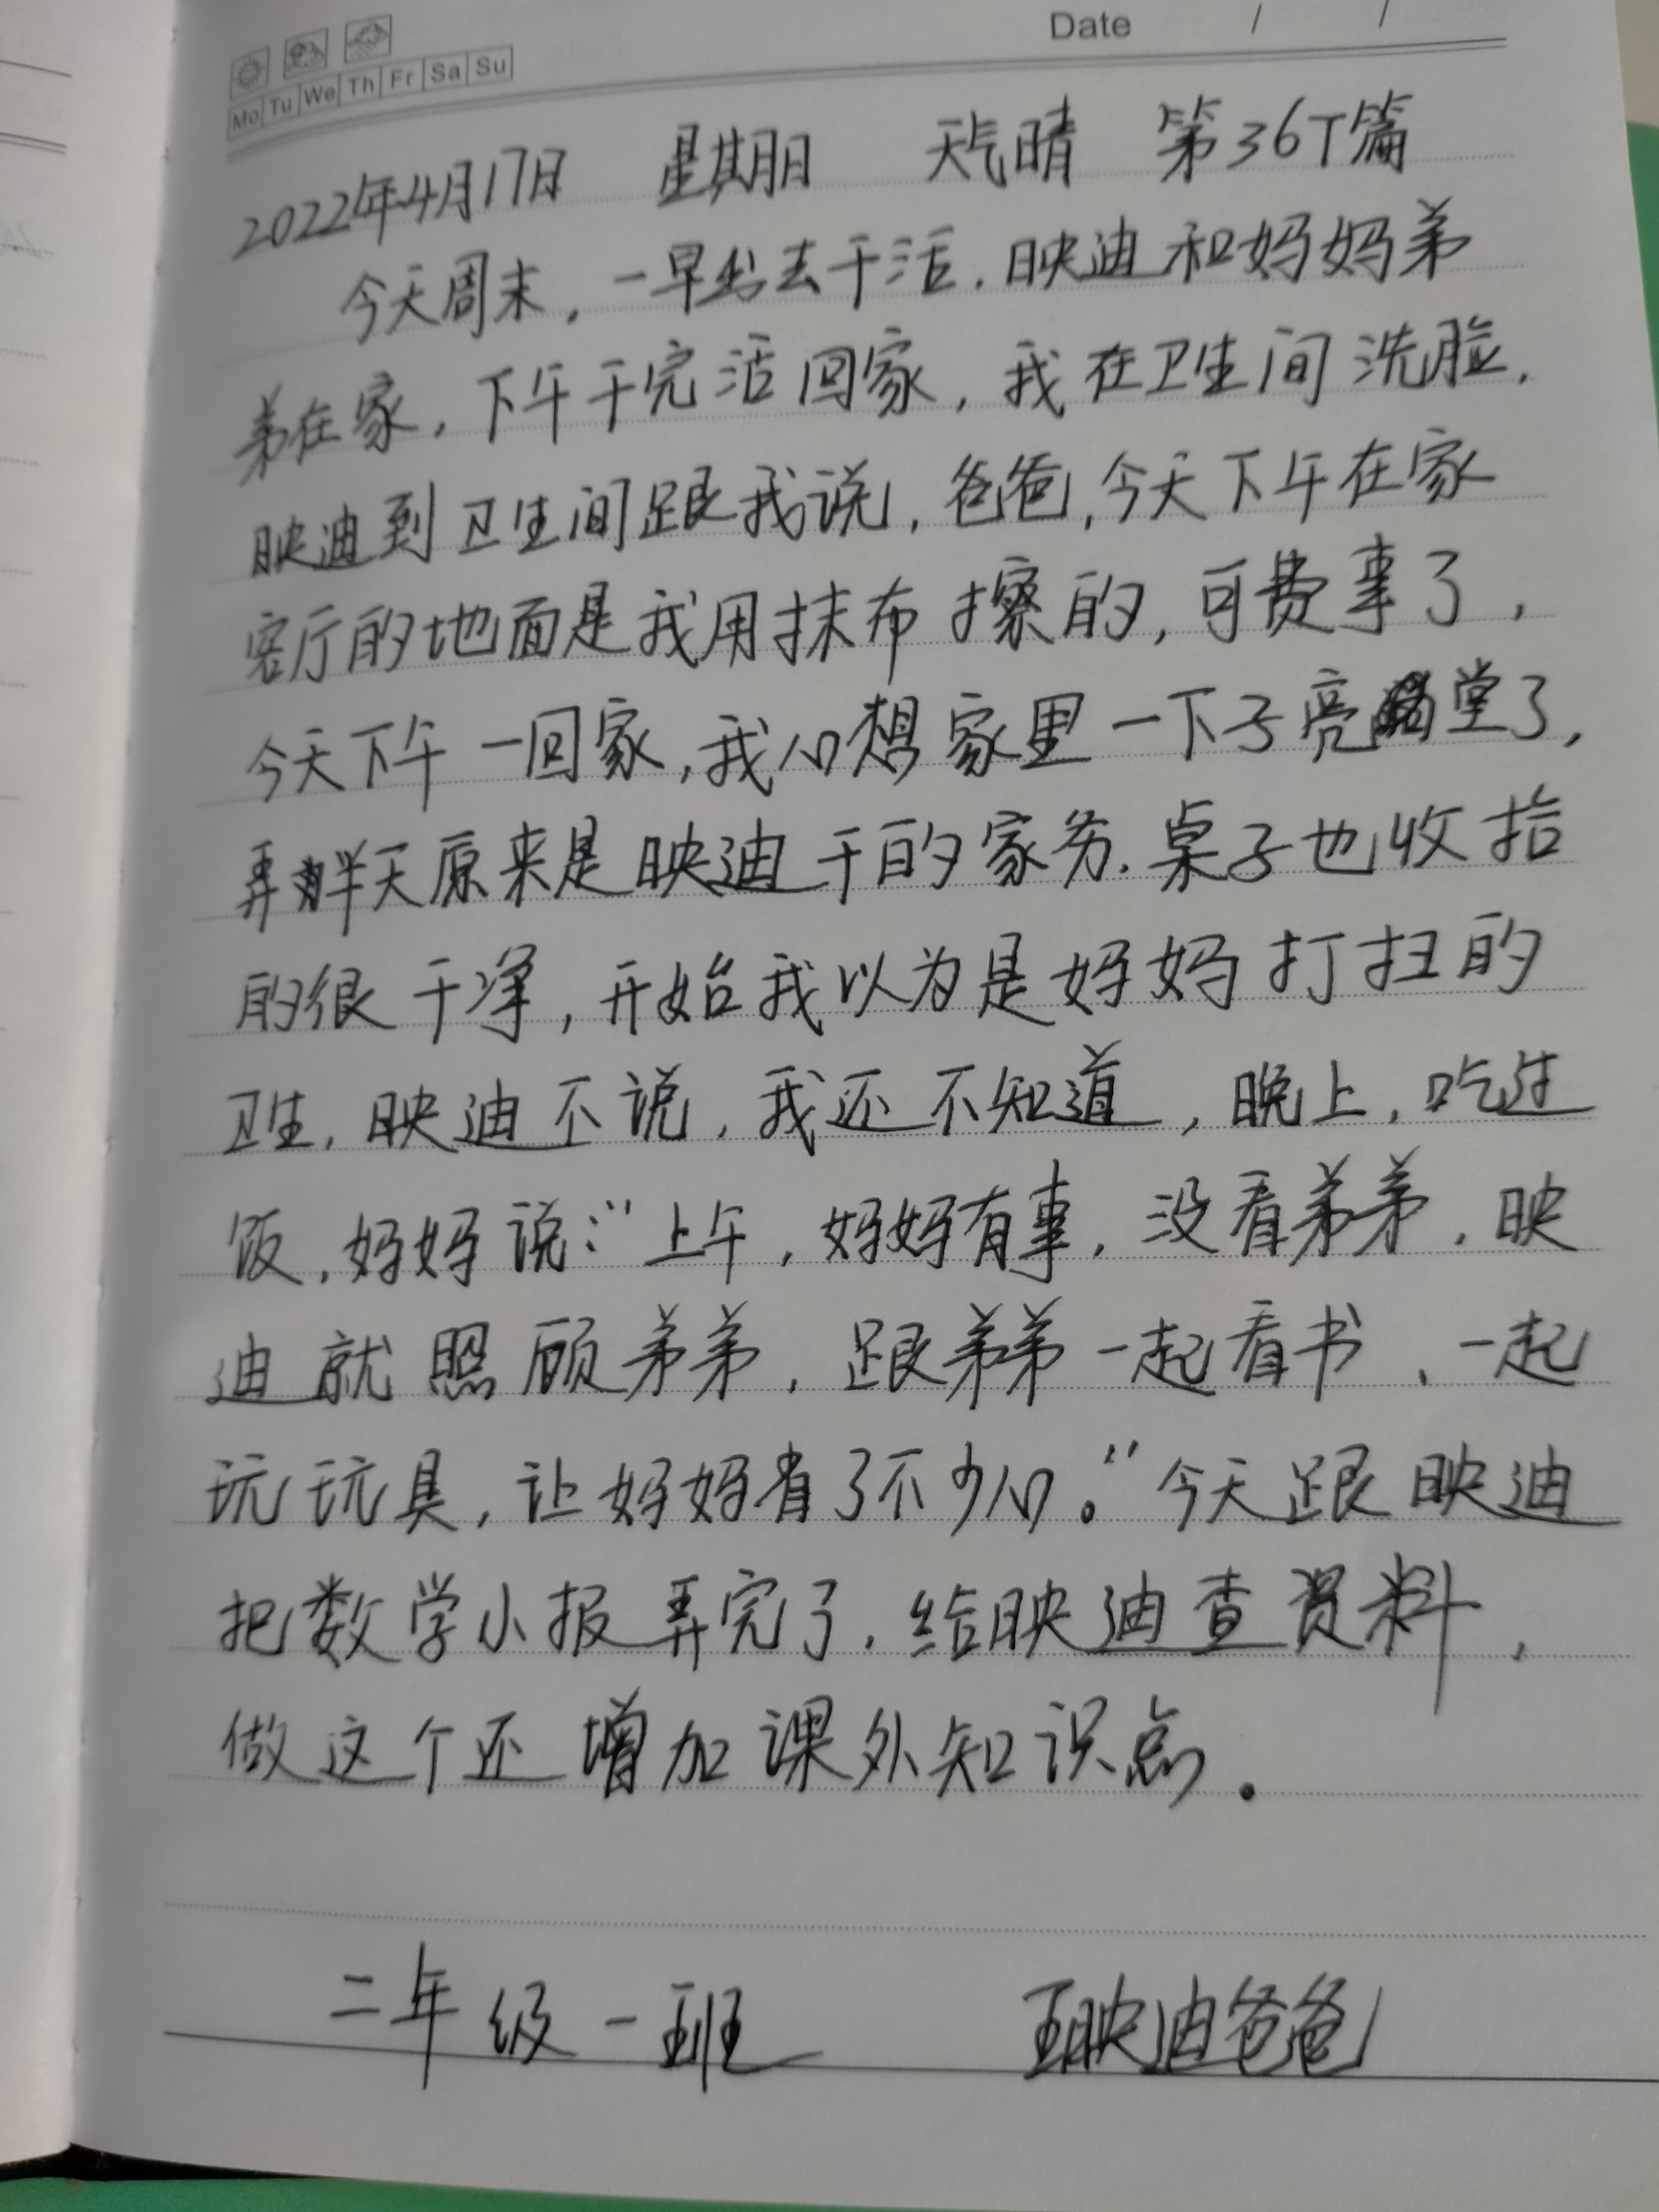 Date / /
Mo Tu We Th Fr Sa Su
2022年4月17日 星期日 天气晴 第36T篇
今天周末，一早出去干活，映迪和妈妈弟
弟在家，下午干完活回家，我在卫生间洗脸，
映迪到卫生间跟我说，爸爸，今天下午在家
客厅的地面是我用抹布擦的，可费事了，
今天下午一回家，我心想家里一下子亮堂了，
弄半天原来是映迪干的家务，桌子也收拾
的很干净，开始我以为是妈妈打扫的
卫生，映迪不说，我还不知道，晚上，吃过
饭，妈妈说：“上午，妈妈有事，没看弟弟，映
迪就照顾弟弟，跟弟弟一起看书、一起
玩玩具，让妈妈省了不少心。”今天跟映迪
把数学小报弄完了，给映迪查资料，
做这个还增加课外知识点.
二年级一班 王映迪爸爸